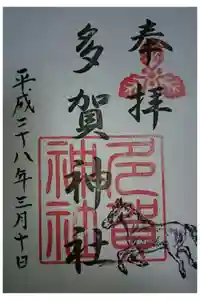 奉拝
多賀神社
平成二十八年三月十日
多賀
神社